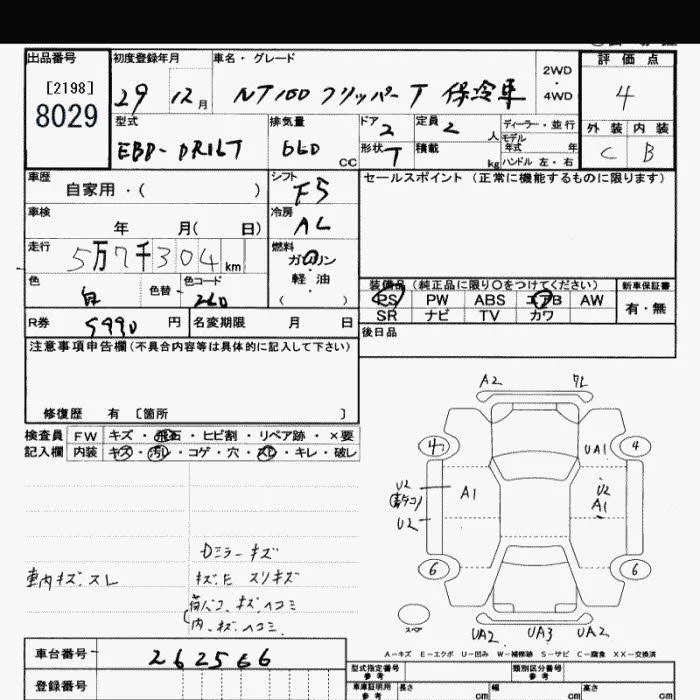 出品番号 初度登録年月 車名・グレード 2WD 評価点
[2198] 29 12月 NT100 クリッパー T 保冷車 4WD 4
8029
型式 排気量 ドア 2 定員 2 人 ディーラー・並行 外装 内装
EBD-DR16T 660 CC 形状 T 積載 kg モデル年式 年 ハンドル 左・右 C B
車歴 シフト セールスポイント (正常に機能するものに限ります)
自家用・( ) F5
車検 冷房
年 月( 日) AC
走行 燃料
5万7千304 km ガソリン
色 色替 色コード 軽油
白 - 26U ( )
装備品 (純正品に限り○をつけてください) 新車保証書
PS PW ABS エアB AW 有・無
SR ナビ TV カワ
R券 5990 円 名変期限 月 日
後日品
注意事項申告欄(不具合内容等は具体的に記入して下さい)
修復歴 有 〔箇所 〕
検査員 FW キズ・飛石・ヒビ割・リペア跡・×要
記入欄 内装 キズ・汚レ・コゲ・穴・スレ・キレ・破レ
A2 7L
4 4
UA1
U2 A1 U2
A1
U2
6 6
スペア
UA2 UA3 UA2
Dミラーキズ
車内キズ.スレ キズ.E スリキズ
荷バコ、キズヘコミ
内、キズ.ヘコミ
A-キズ E-エクボ U-凹み W-補修跡 S-サビ C-腐食 XX-交換済
車台番号 262566
登録番号
型式指定番号 参考 類別区分番号 参考
車庫証明用 参考 長さ cm 幅 cm 高さ cm